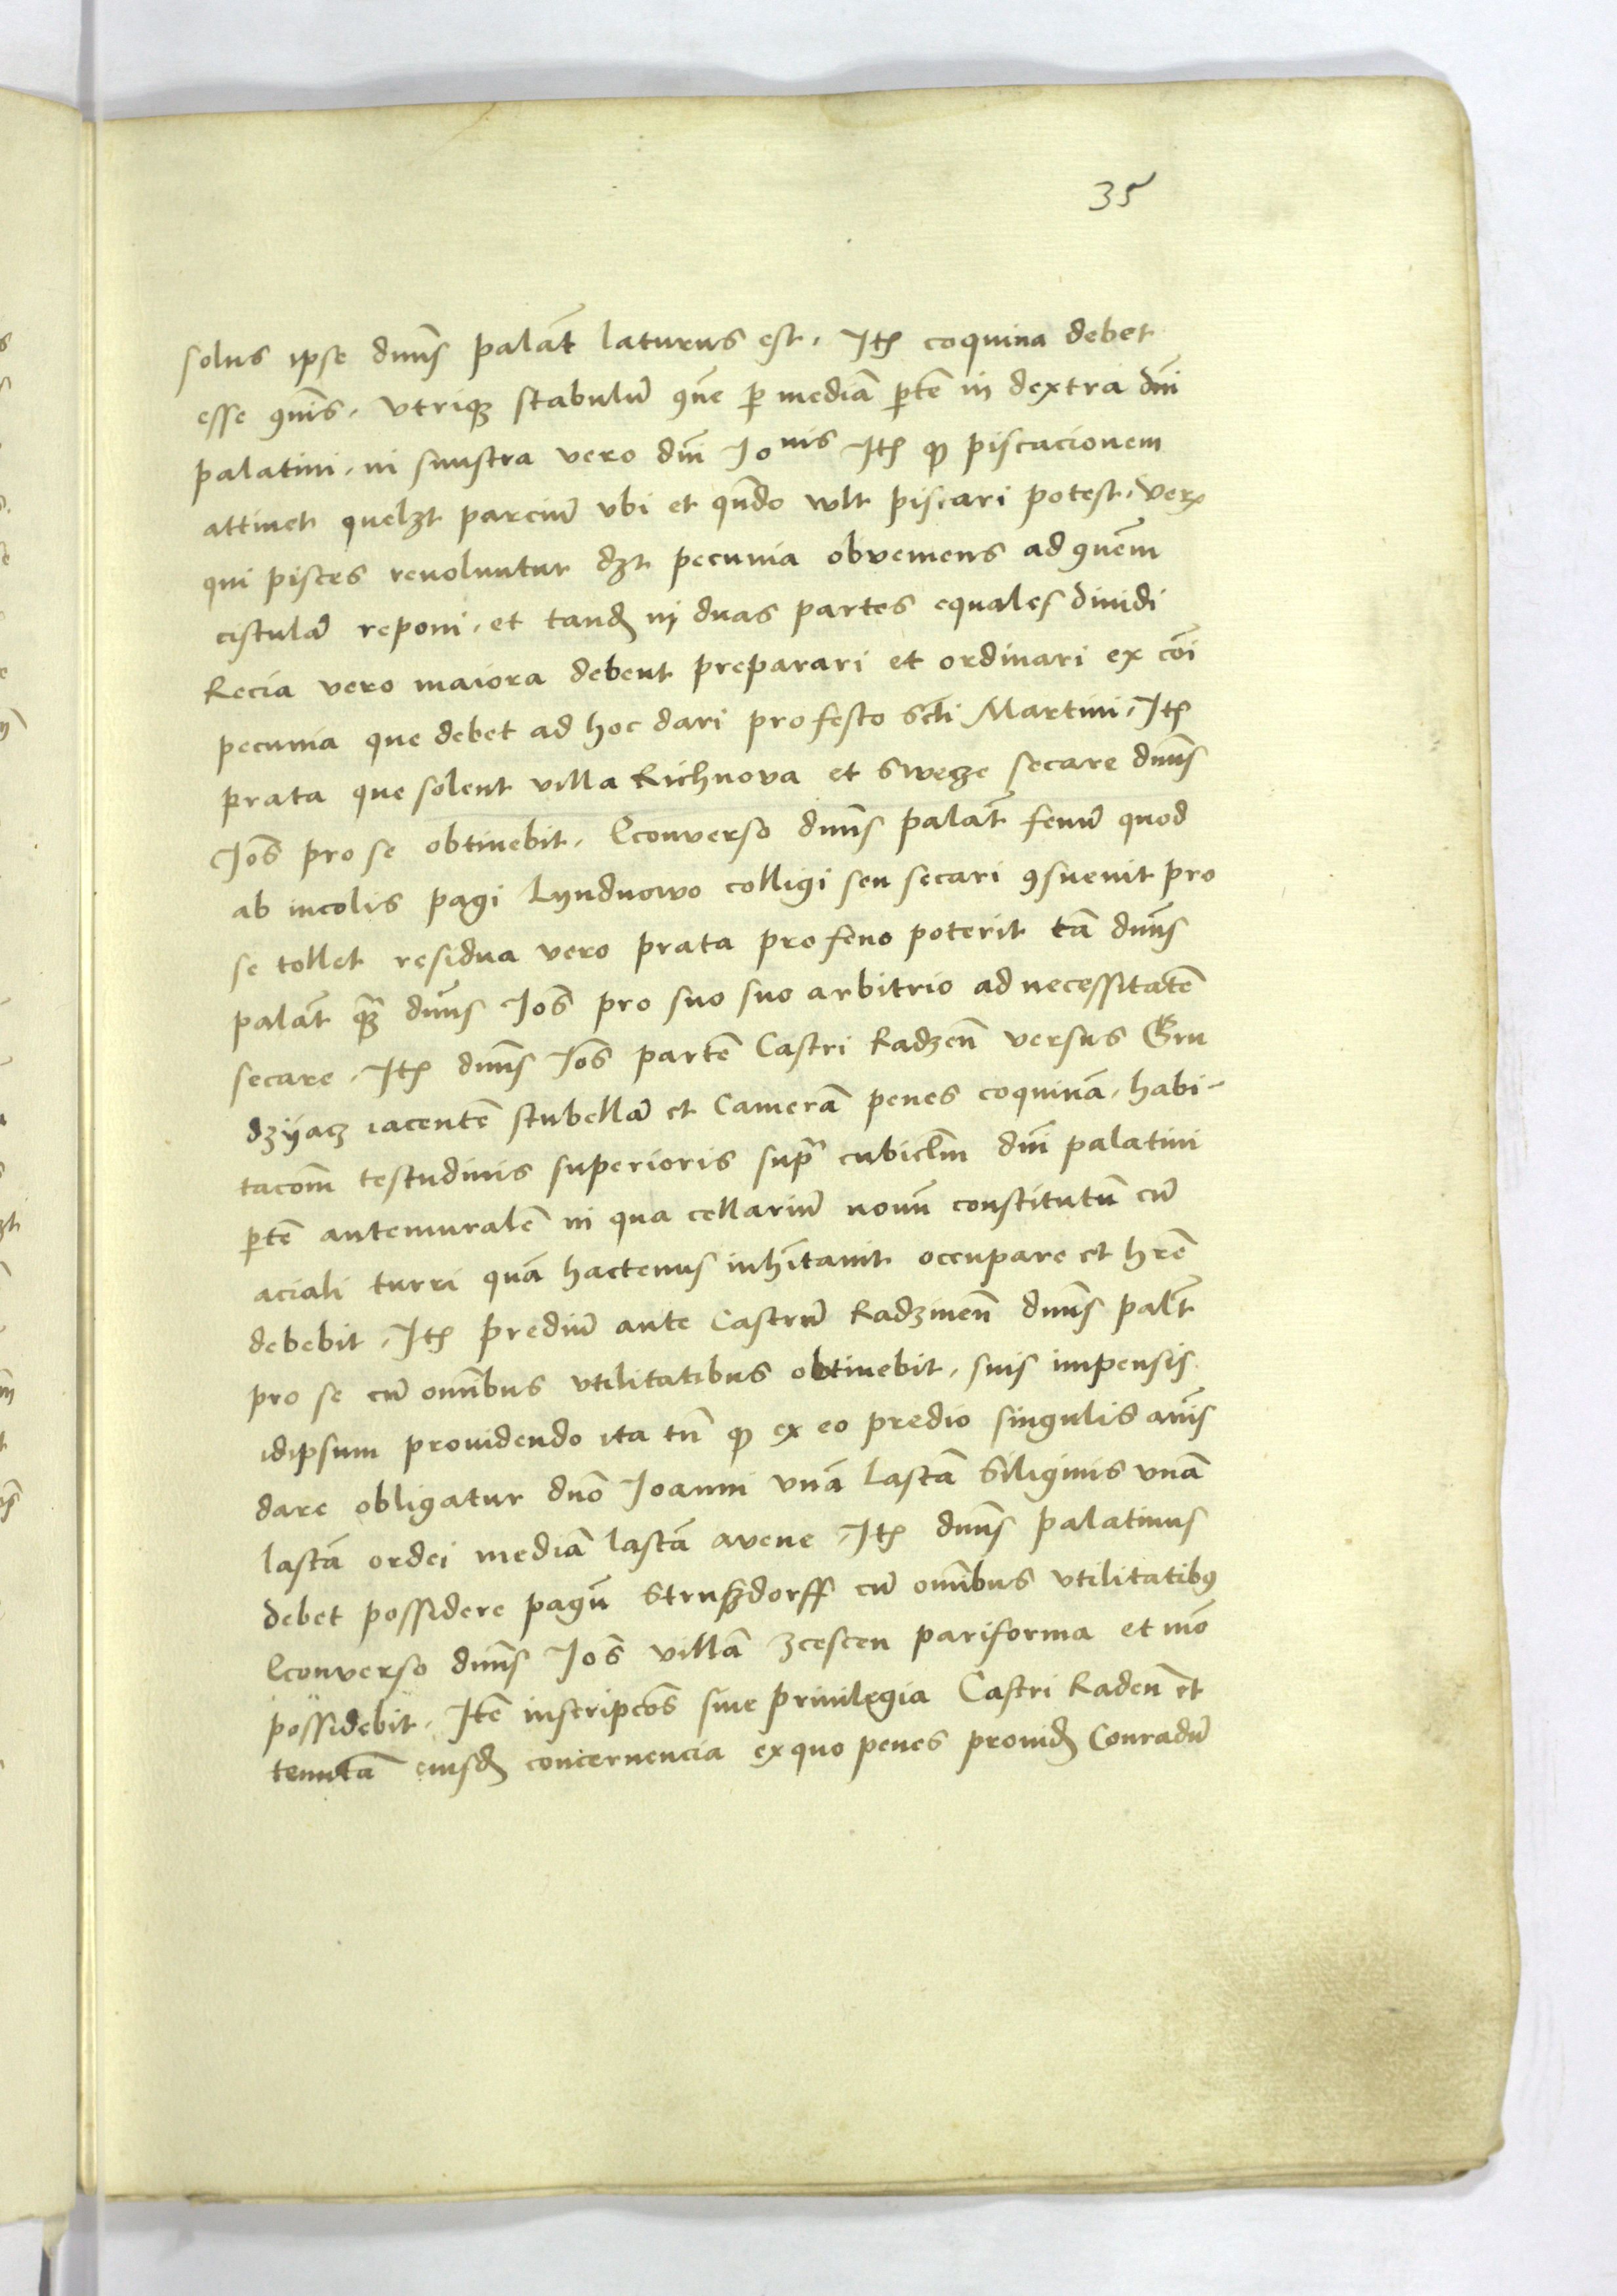 35
solus ipse dnns palat̄ laturus est. Itꝫ coquina debet
esse ꝯnis. Utriqꝫ stabulū ꝯne ꝑ mediā ꝑtē in dextra dni
palatini. in sinistra vero dni Ioⁿⁱˢ Itꝫ qꝫ piscacionem
attinet quelꝫt parciū ubi et qn̄do wlt piscari potest. Verꝫ
qui pisces revoluntur dꝫt pecunia obveniens ad ꝯnem
cistulā reponi. et tandꝫ in duas partes equales dividi
Recia vero maiora debent preparari et ordinari ex cōi
pecunia que debet ad hoc dari pro festo Scti Martini. Itꝫ
prata que solent villa Richnova et Swecze secare dnns
Ioēs pro se obtinebit. Econverso dnns palat̄ fenū quod
ab incolis pagi Lyndnowo colligi seu secari ꝯsuevit pro
se tollet residua vero prata pro feno poterit tā dnns
palat̄ qꝫ dnns Ioēs pro suo suo arbitrio ad necessitatē
secare. Itꝫ dnns Ioēs partē Castri Radzen̄ versus Gru
dzÿacz iacentē stubellā et Camerā penes coquinā. habi-
tacōm testudinis superioris supr cubiclm dni palatini
ꝑtē antemuralē in qua cellariū novū constitutū cū
aciali turri quā hactenus inhītavit occupare et hr̄e
debebit. Itꝫ prediū ante Castrū Radzinen̄ dnns palt̄
pro se cū omībus utilitatibus obtinebit. suis impensis
idipsum providendo ita tn̄ qꝫ ex eo predio singulis an̄is
dare obligatur dnō Joanni unā Lastā Siliginis unā
lastā ordei mediā lastā avene. Itꝫ dnns palatinus
debet possidere pagū Struszdorff cū omībus utilitatibꝰ
Econverso dnns Ioēs villā Zcescen pariforma et mō
possidebit. Itē inscripcōes sive privilegia Castri Raden̄ et
tenutā eiusdꝫ concernencia ex quo penes providꝫ Conradū